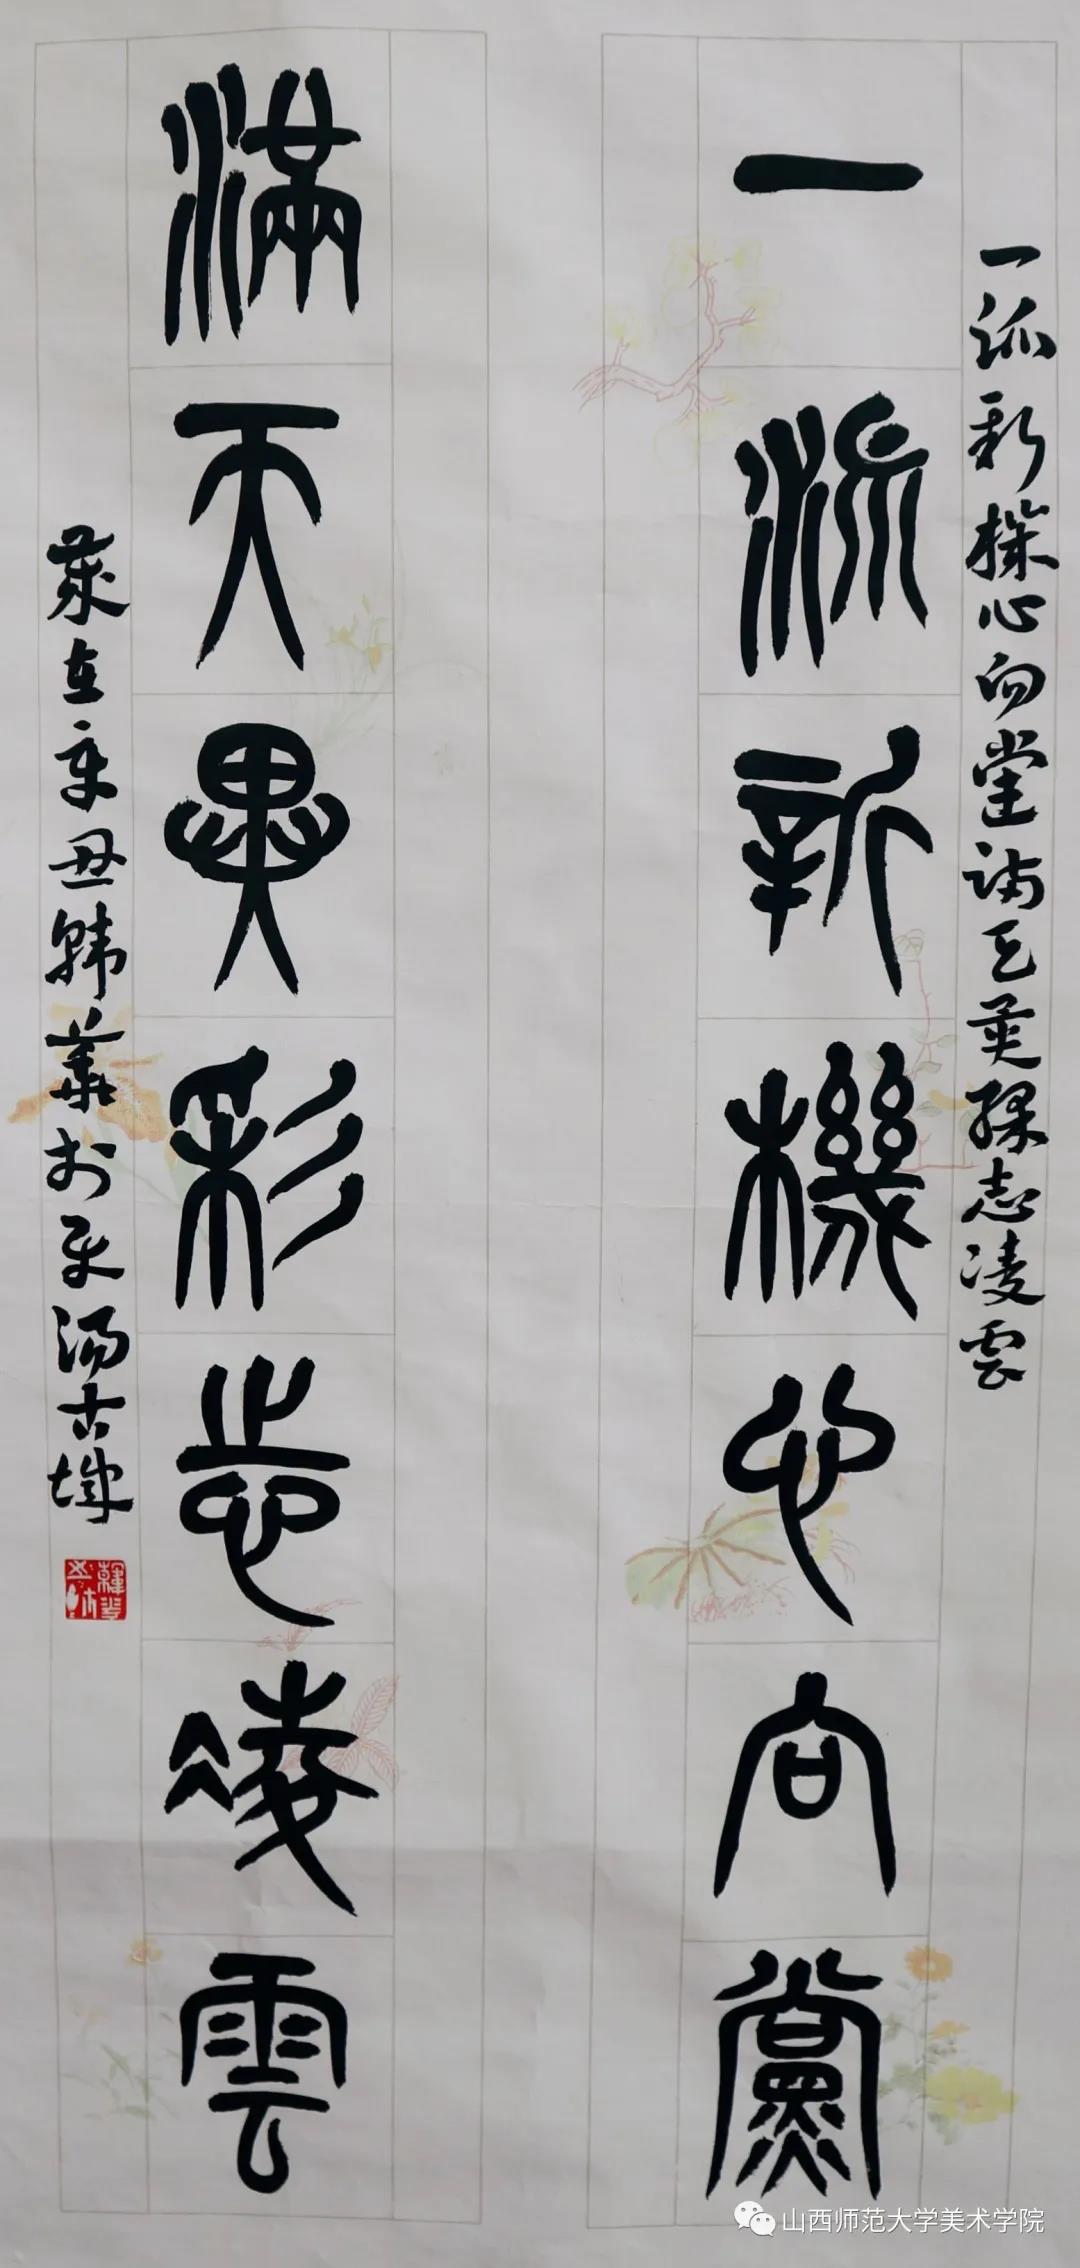 一派新機心向黨滿天異彩志凌雲
一派新機心向黨
滿天異彩志凌雲
歲在辛丑韓華於平陽古城
山西师范大学美术学院